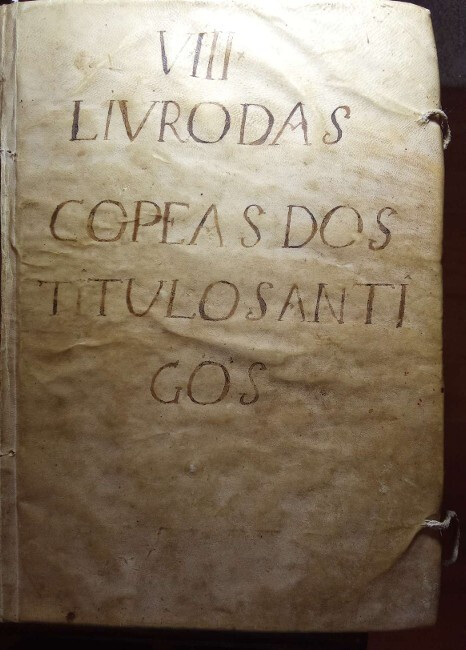 VIII
LIVRO DAS
COPEAS DOS
TITULOS ANTI
GOS